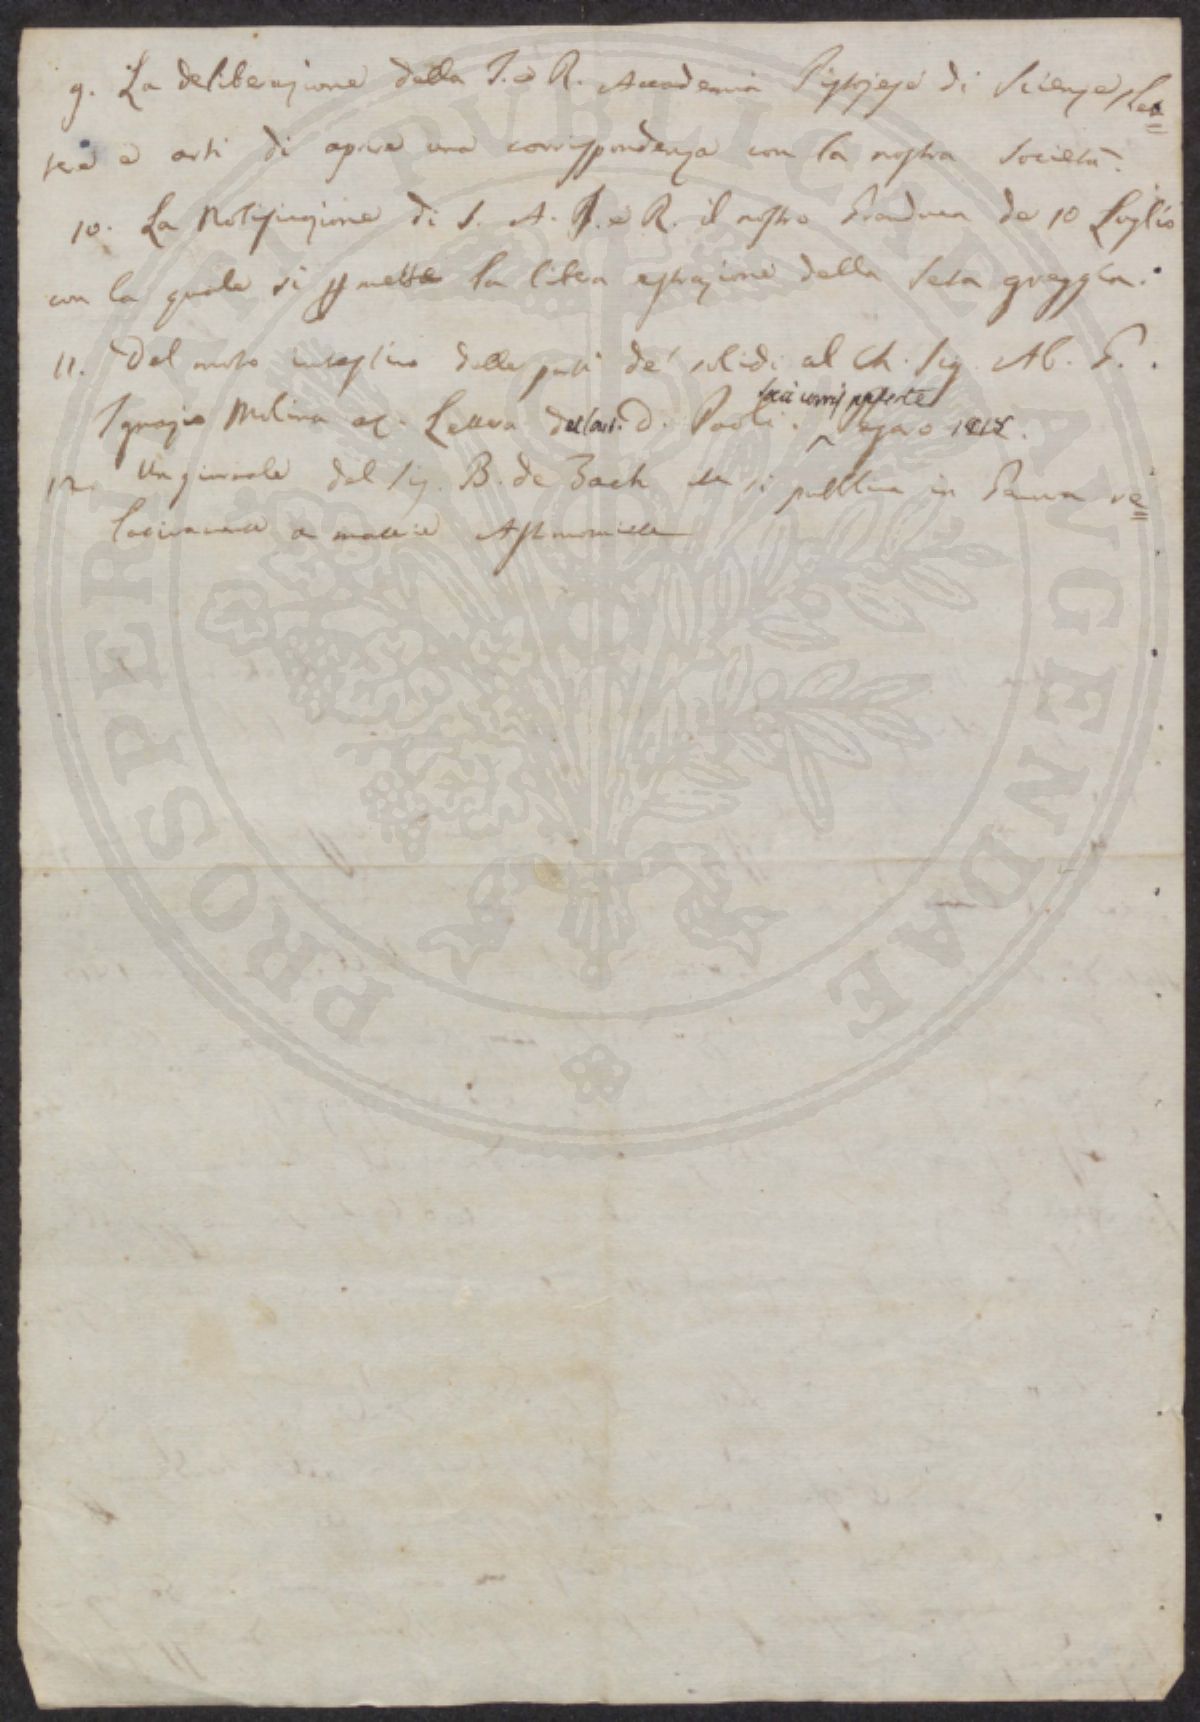 9. La deliberazione della I. e R. Accademia Pistojese di Scienze, Let=
tere e arti di aprire una corrispondenza con la nostra Società.
10. La Notificazione di S. A. I. e R. il nostro Granduca de 10 Luglio
con la quale si permette la libera estrazione della Seta greggia.
11. Del moto intestino delle parti de' solidi al Ch. Sig. Ab. G.
Ignazio Molina ec. Lettera del Cav. D. Paoli.
Pesaro
12. Un giornale del Sig. B. de Zach che si pubblica in Genova re=
lativamente a materie Astronomiche
PROSPERITATI PVBLICAE AVGENDAE